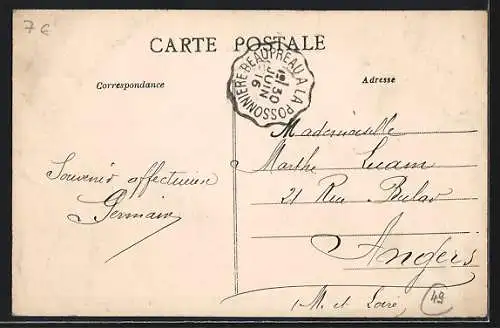 7 €
CARTE POSTALE
BEAUPREAU A LA POSSONNIERE
1E
30
JUIN
16
Correspondance
Adresse
Mademoiselle
Marthe
Souvenir affectueux
Germain
21 Rue
Angers
(M. et Loire)
49